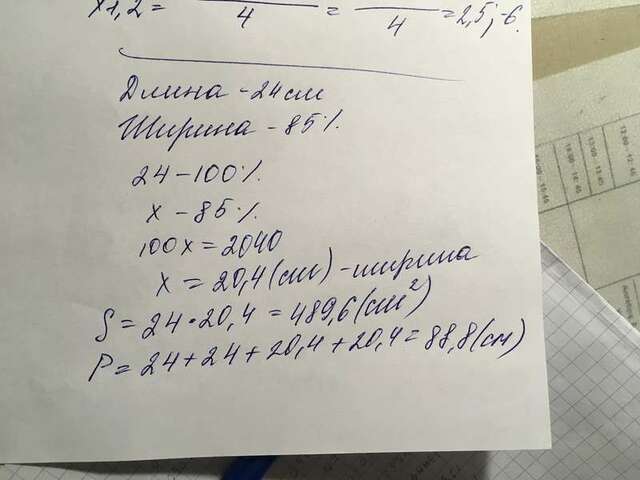 x1,2 = ― = ― = 2,5; -6.
4 4
Длина - 24 см
Ширина - 85%.
24 - 100%.
x - 85%
100x = 2040
x = 20,4 (см) - ширина
S = 24 * 20,4 = 489,6 (см²)
P = 24 + 24 + 20,4 + 20,4 = 88,8 (см)